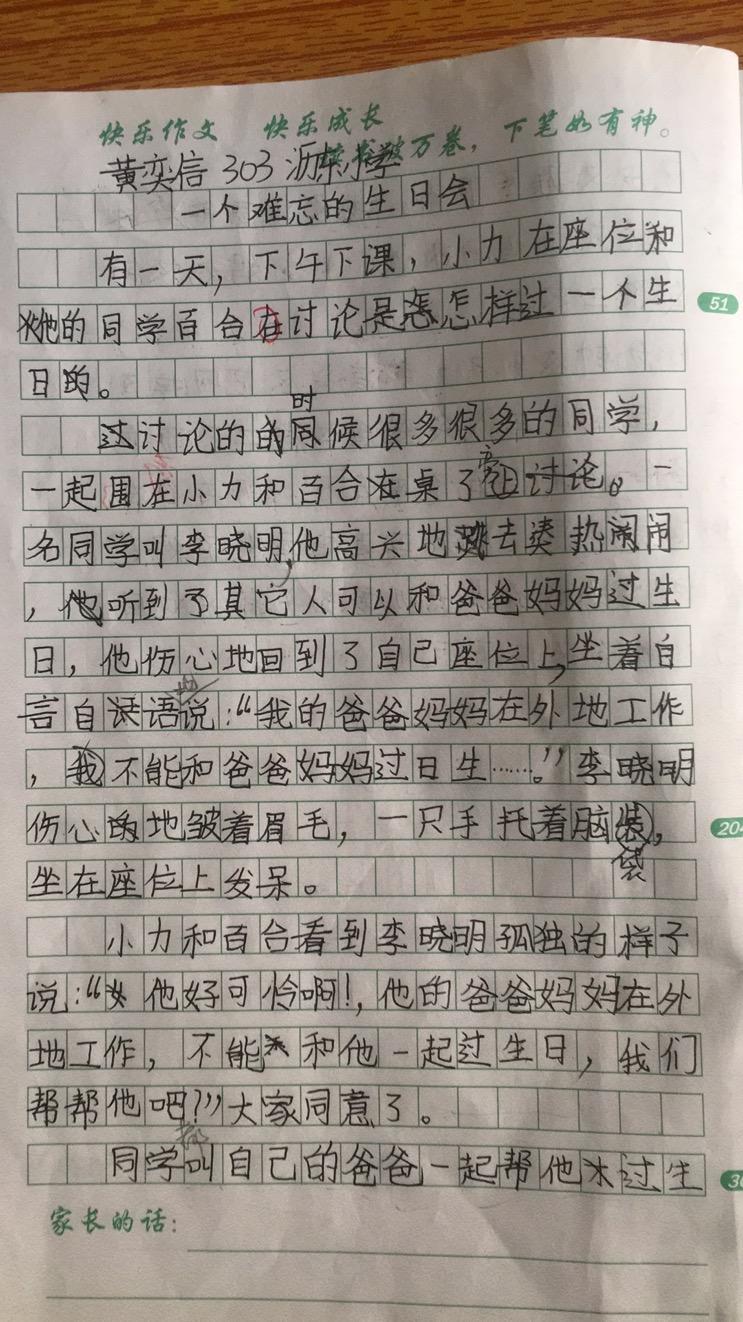 快乐作文 快乐成长
万卷，下笔如有神。
黄奕信 303 沥东小学
一个难忘的生日会
有一天，下午下课，小力在座位和
她的同学百合在讨论是怎样过一个生
51
日的。
讨论的时候很多很多的同学，
一起围在小力和百合在桌了旁上讨论。一
名同学叫李晓明，他高兴地跳去凑热闹
，他听到了其它人可以和爸爸妈妈过生
日，他伤心地回到了自己座位上，坐着自
言自语地说：“我的爸爸妈妈在外地工作
，我不能和爸爸妈妈过日生……。”李晓明
伤心的地皱着眉毛，一只手托着脑袋，
204
坐在座位上发呆。
小力和百合看到李晓明孤独的样子
说：“他好可怜啊！，他的爸爸妈妈在外
地工作，不能和他一起过生日，我们
帮帮他吧？”大家同意了。
同学都叫自己的爸爸一起帮他过生
家长的话：